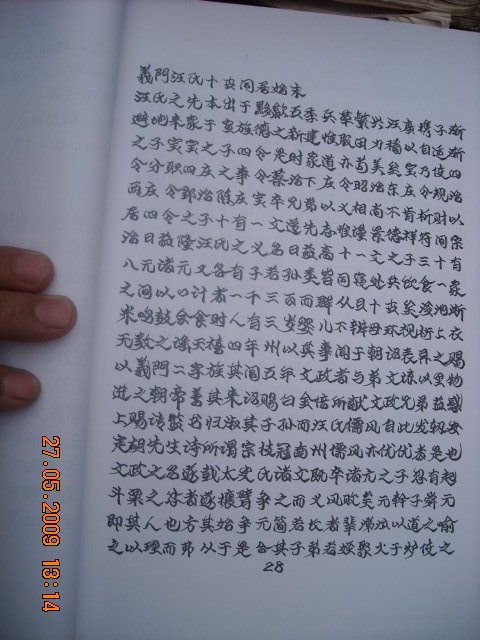 義門汪氏十世同居始末
汪氏之先本出于黟歙五季兵革繁兴汪廣携子渐
避地来家于宣族德之新建惟服田力穑以自适渐
之子宝宝之子四令是时家道亦苟美矣宝乃使四
令分职四庄之事令蔡治下庄令昭治东庄令规治
西庄令郢治陈庄宝卒兄弟以义相尚不肯析财以
居四令之子十有一文遵先志惟谨景德祥符间宗
治日益隆汪氏之义名日益高十一文之子三十有
八元诸元又各有子若孙类皆同寝处共饮食一家
之间以口计者一千三百而群从且十世矣浚池淅
米鸣鼓会食时人有三岁婴儿不辨母环视桁上衣
无数之谣天禧四年州以其事闻于朝诏表异之赐
以義門二字旌其闾五年文政者与弟文谏以里物
进之朝帝善其来诏赐白金倍所献文政兄弟益感
上赐请监书归淑其子孙而汪氏儒风自此发轫安
定胡先生诗所谓宗枝冠南州儒风亦优优者是也
文政之名遂载太史氏诸文既卒诸元之子忍有起
斗粟之谷者遂攘臂争之而义风败矣元幹子舜元
即其人也方其始争元简若长者辈沸泣以道之喻
之以理而弗从于是合其子弟若姪聚大于炉使之
28
27.05.2009 13:14